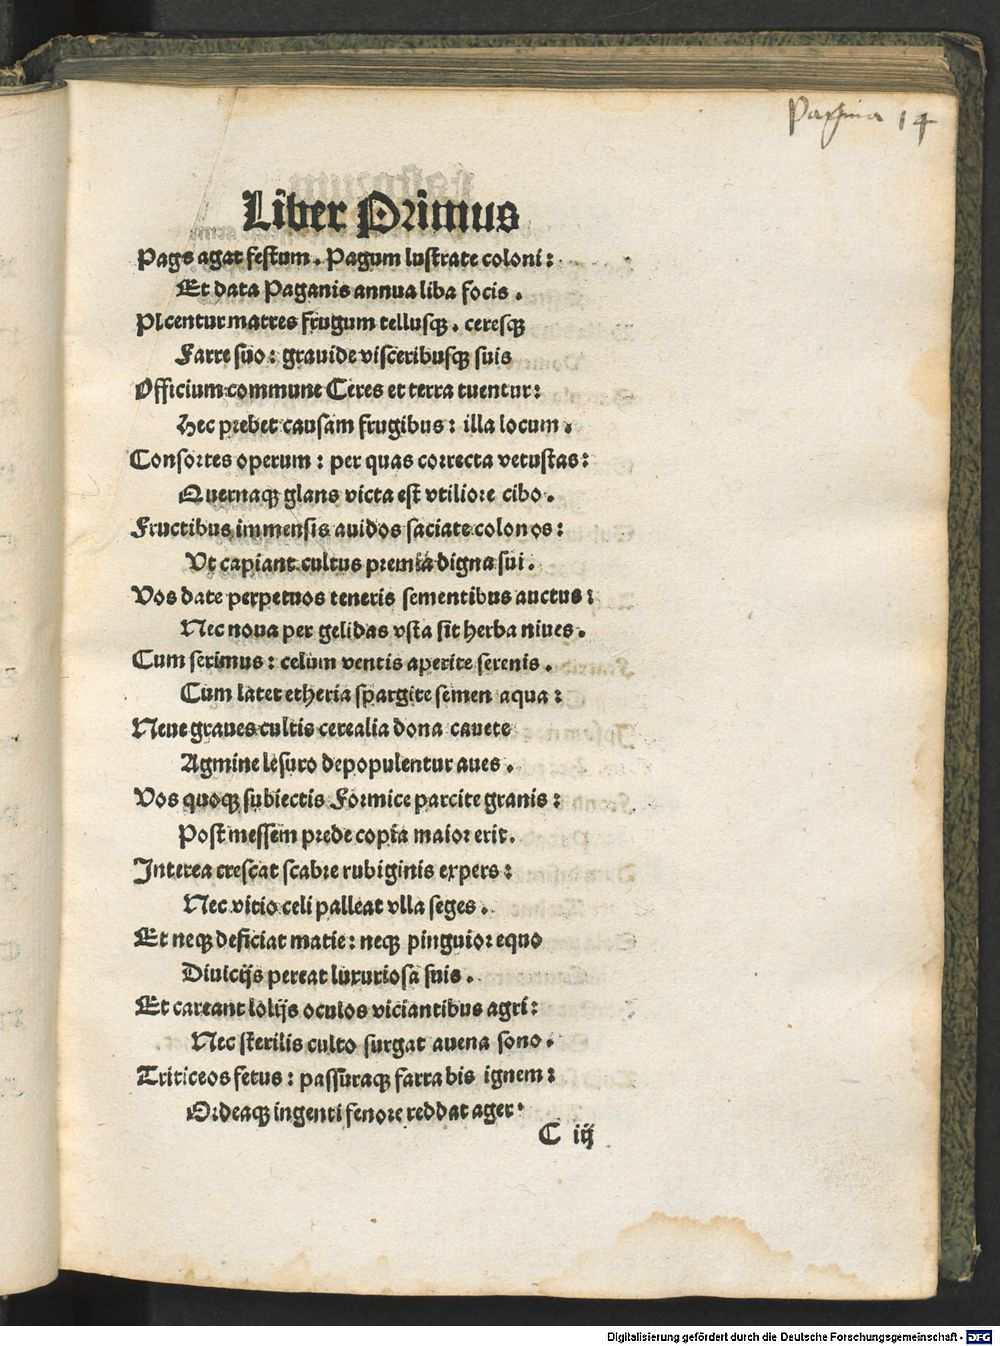 Pagina 14
Liber Primus
Pags agat festum. Pagum lustrate coloni:
Et data Paganis annua liba focis.
Plcentur matres frugum tellusqꝫ. ceresqꝫ
Farre suo: grauide visceribusqꝫ suis
Officium commune Ceres et terra tuentur:
Hec prebet causam frugibus: illa locum.
Consortes operum: per quas correcta vetustas:
Quernaqꝫ glans victa est vtiliore cibo.
Fructibus immensis auidos saciate colonos:
Vt capiant cultus premia digna sui.
Vos date perpetuos teneris sementibus auctus:
Nec noua per gelidas vsta sit herba niues.
Cum serimus: celum ventis aperite serenis.
Cum latet etheria spargite semen aqua:
Neue graues cultis cerealia dona cauete
Agmine lesuro depopulentur aues.
Vos quoqꝫ subiectis Formice parcite granis:
Post messem prede copia maior erit.
Interea crescat scabre rubiginis expers:
Nec vitio celi palleat vlla seges.
Et neqꝫ deficiat matie: neqꝫ pinguior equo
Diuicijs pereat luxuriosa suis.
Et careant lolijs oculos viciantibus agri:
Nec sterilis culto surgat auena sono.
Triticeos fetus: passuraqꝫ farra bis ignem:
Ordeaqꝫ ingenti fenore reddat ager.
C iij
Digitalisierung gefördert durch die Deutsche Forschungsgemeinschaft - DFG